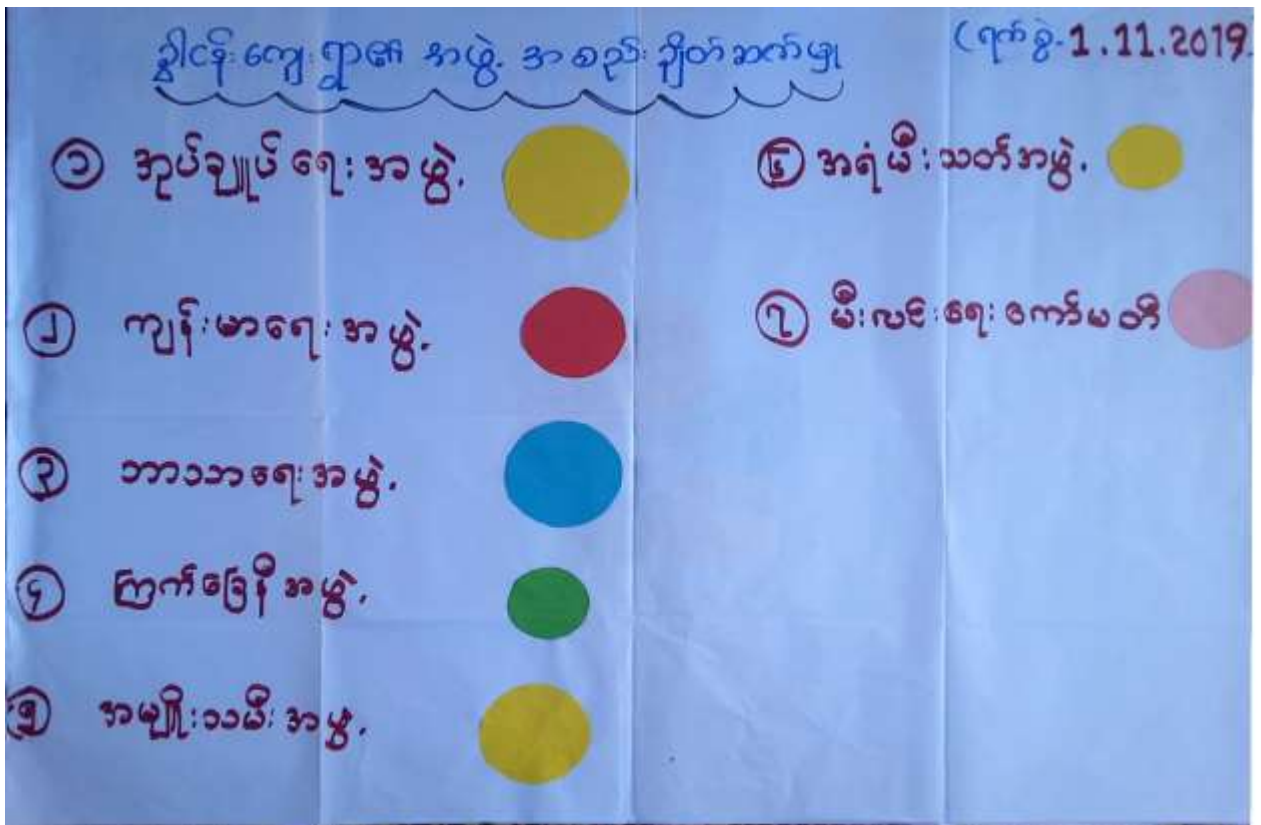 ခွါငန်းကျေးရွာ၏ အဖွဲ့ အစည်း ချိတ်ဆက်မှု
(ရက်စွဲ- 1.11.2019
၁ အုပ်ချုပ်ရေးအဖွဲ့
၂ ကျန်းမာရေးအဖွဲ့
၃ ဘာသာရေးအဖွဲ့
၄ ကြက်ခြေနီအဖွဲ့
၅ အမျိုးသမီးအဖွဲ့
၆ အရံမီးသတ်အဖွဲ့
၇ မီးလင်းရေးကော်မတီ